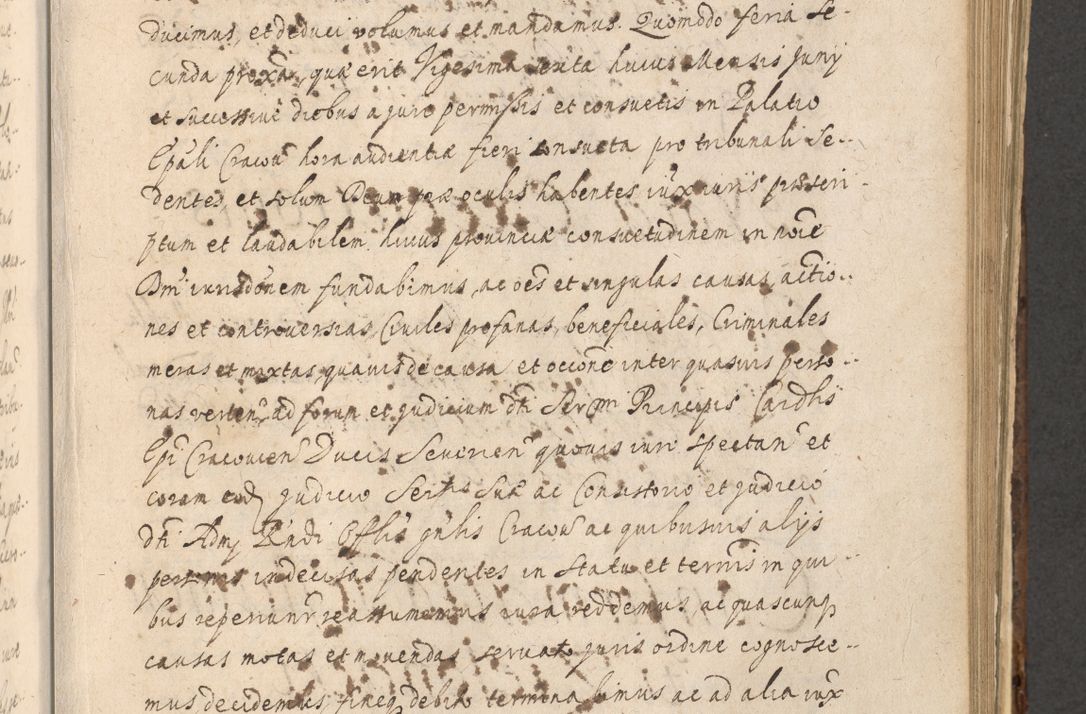 ducimus, et deduci volumus et mandamus. Quomodo feria se-
cunda proxã, quæ erit Vigesima sexta huius Mensis Junij
et successiue diebus a jure permissis et consuetis in Palatio
Epãli Cracoũ hora audientiæ fieri consueta pro tribunali se-
dentes, et solum Deum præ oculis habentes iuxta iuris præscri-
ptum et laudabilem huius prouinciæ consuetudinem in noĩe
Dnĩ iurisdõnem fundabimus, ac oẽs et singulas causas, actio-
nes et controuersias, Ciuiles profanas, beneficiales, Criminales
meras et mixtas, quauis de causa et occõne inter quasuis perso-
nas verteñ ad forum et judicium dti Sermi Principis Cardlis
Epi Cracouieñ Ducis Seuerieñ quouis iure spectañ et
coram eod judicio Sertis Suæ ac Consistorio et judicio
dti Admj Rndi Offlis gnlis Cracoũ ac quibusuis alijs
personis indecisas pendentes in statu et terminis in qui
bus reperiunr reassumemus iura reddemus, ac quascunq
causas motas et mouendas seruato juris ordine cognosce-
mus decidemus fineq debito terminabimus ac ad alia iux